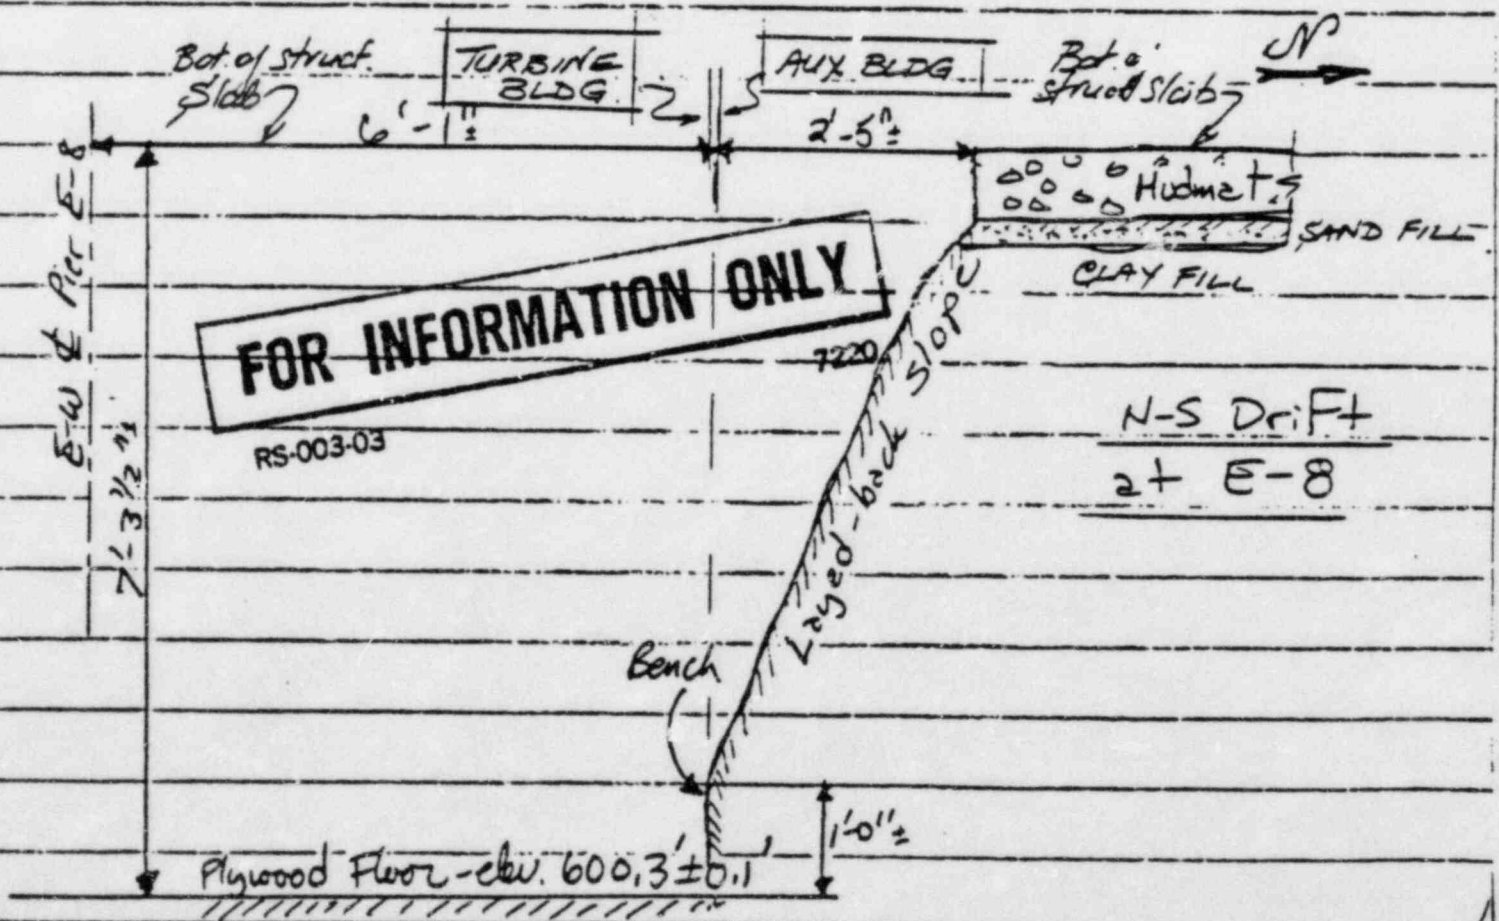 Bot. of struct.
Slab
TURBINE
BLDG.
AUX. BLDG
Bot. o'
struct Slab
N
6'-1"±
2'-5"±
Hudmat
SAND FILL
CLAY FILL
E-W ℄ Pier E-8
7'-3 1/2"±
FOR INFORMATION ONLY
7220
RS-003-03
Layed-back Slope
N-S Drift
at E-8
Bench
1'-0"±
Plywood Floor-elev. 600.3'±0.1'